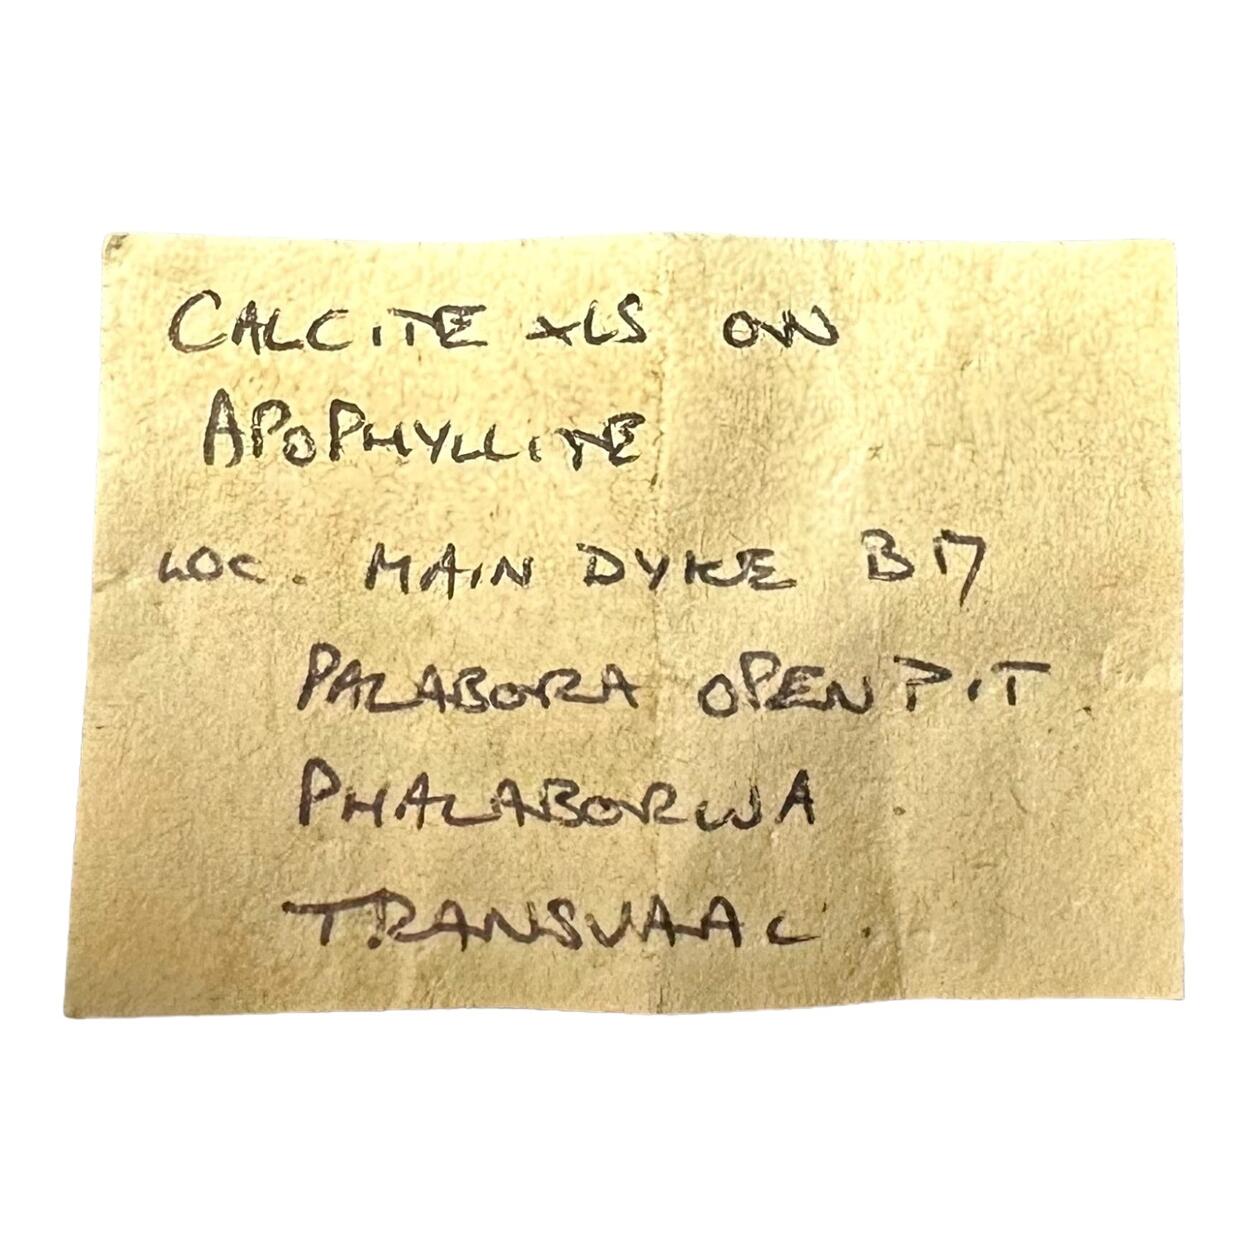 CALCITE XLS ON
APOPHYLLITE
LOC. MAIN DYKE B17
PALABORA OPEN PIT
PHALABORWA
TRANSVAAL.